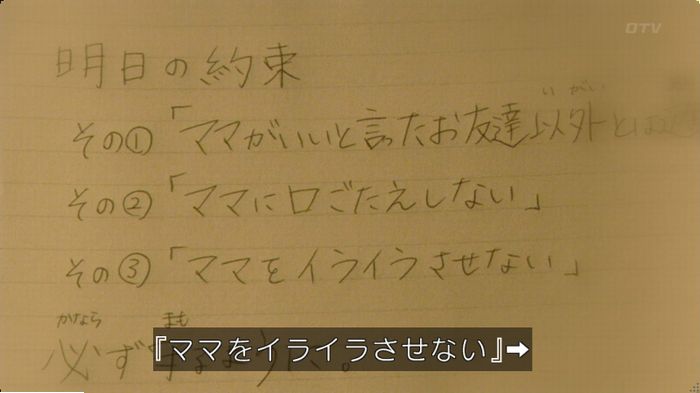 OTV
明日の約束
いがい
その①「ママがいいと言ったお友達以外とは
その②「ママに口ごたえしない」
その③「ママをイライラさせない」
かなら まも
必ず守るように。
『ママをイライラさせない』➡